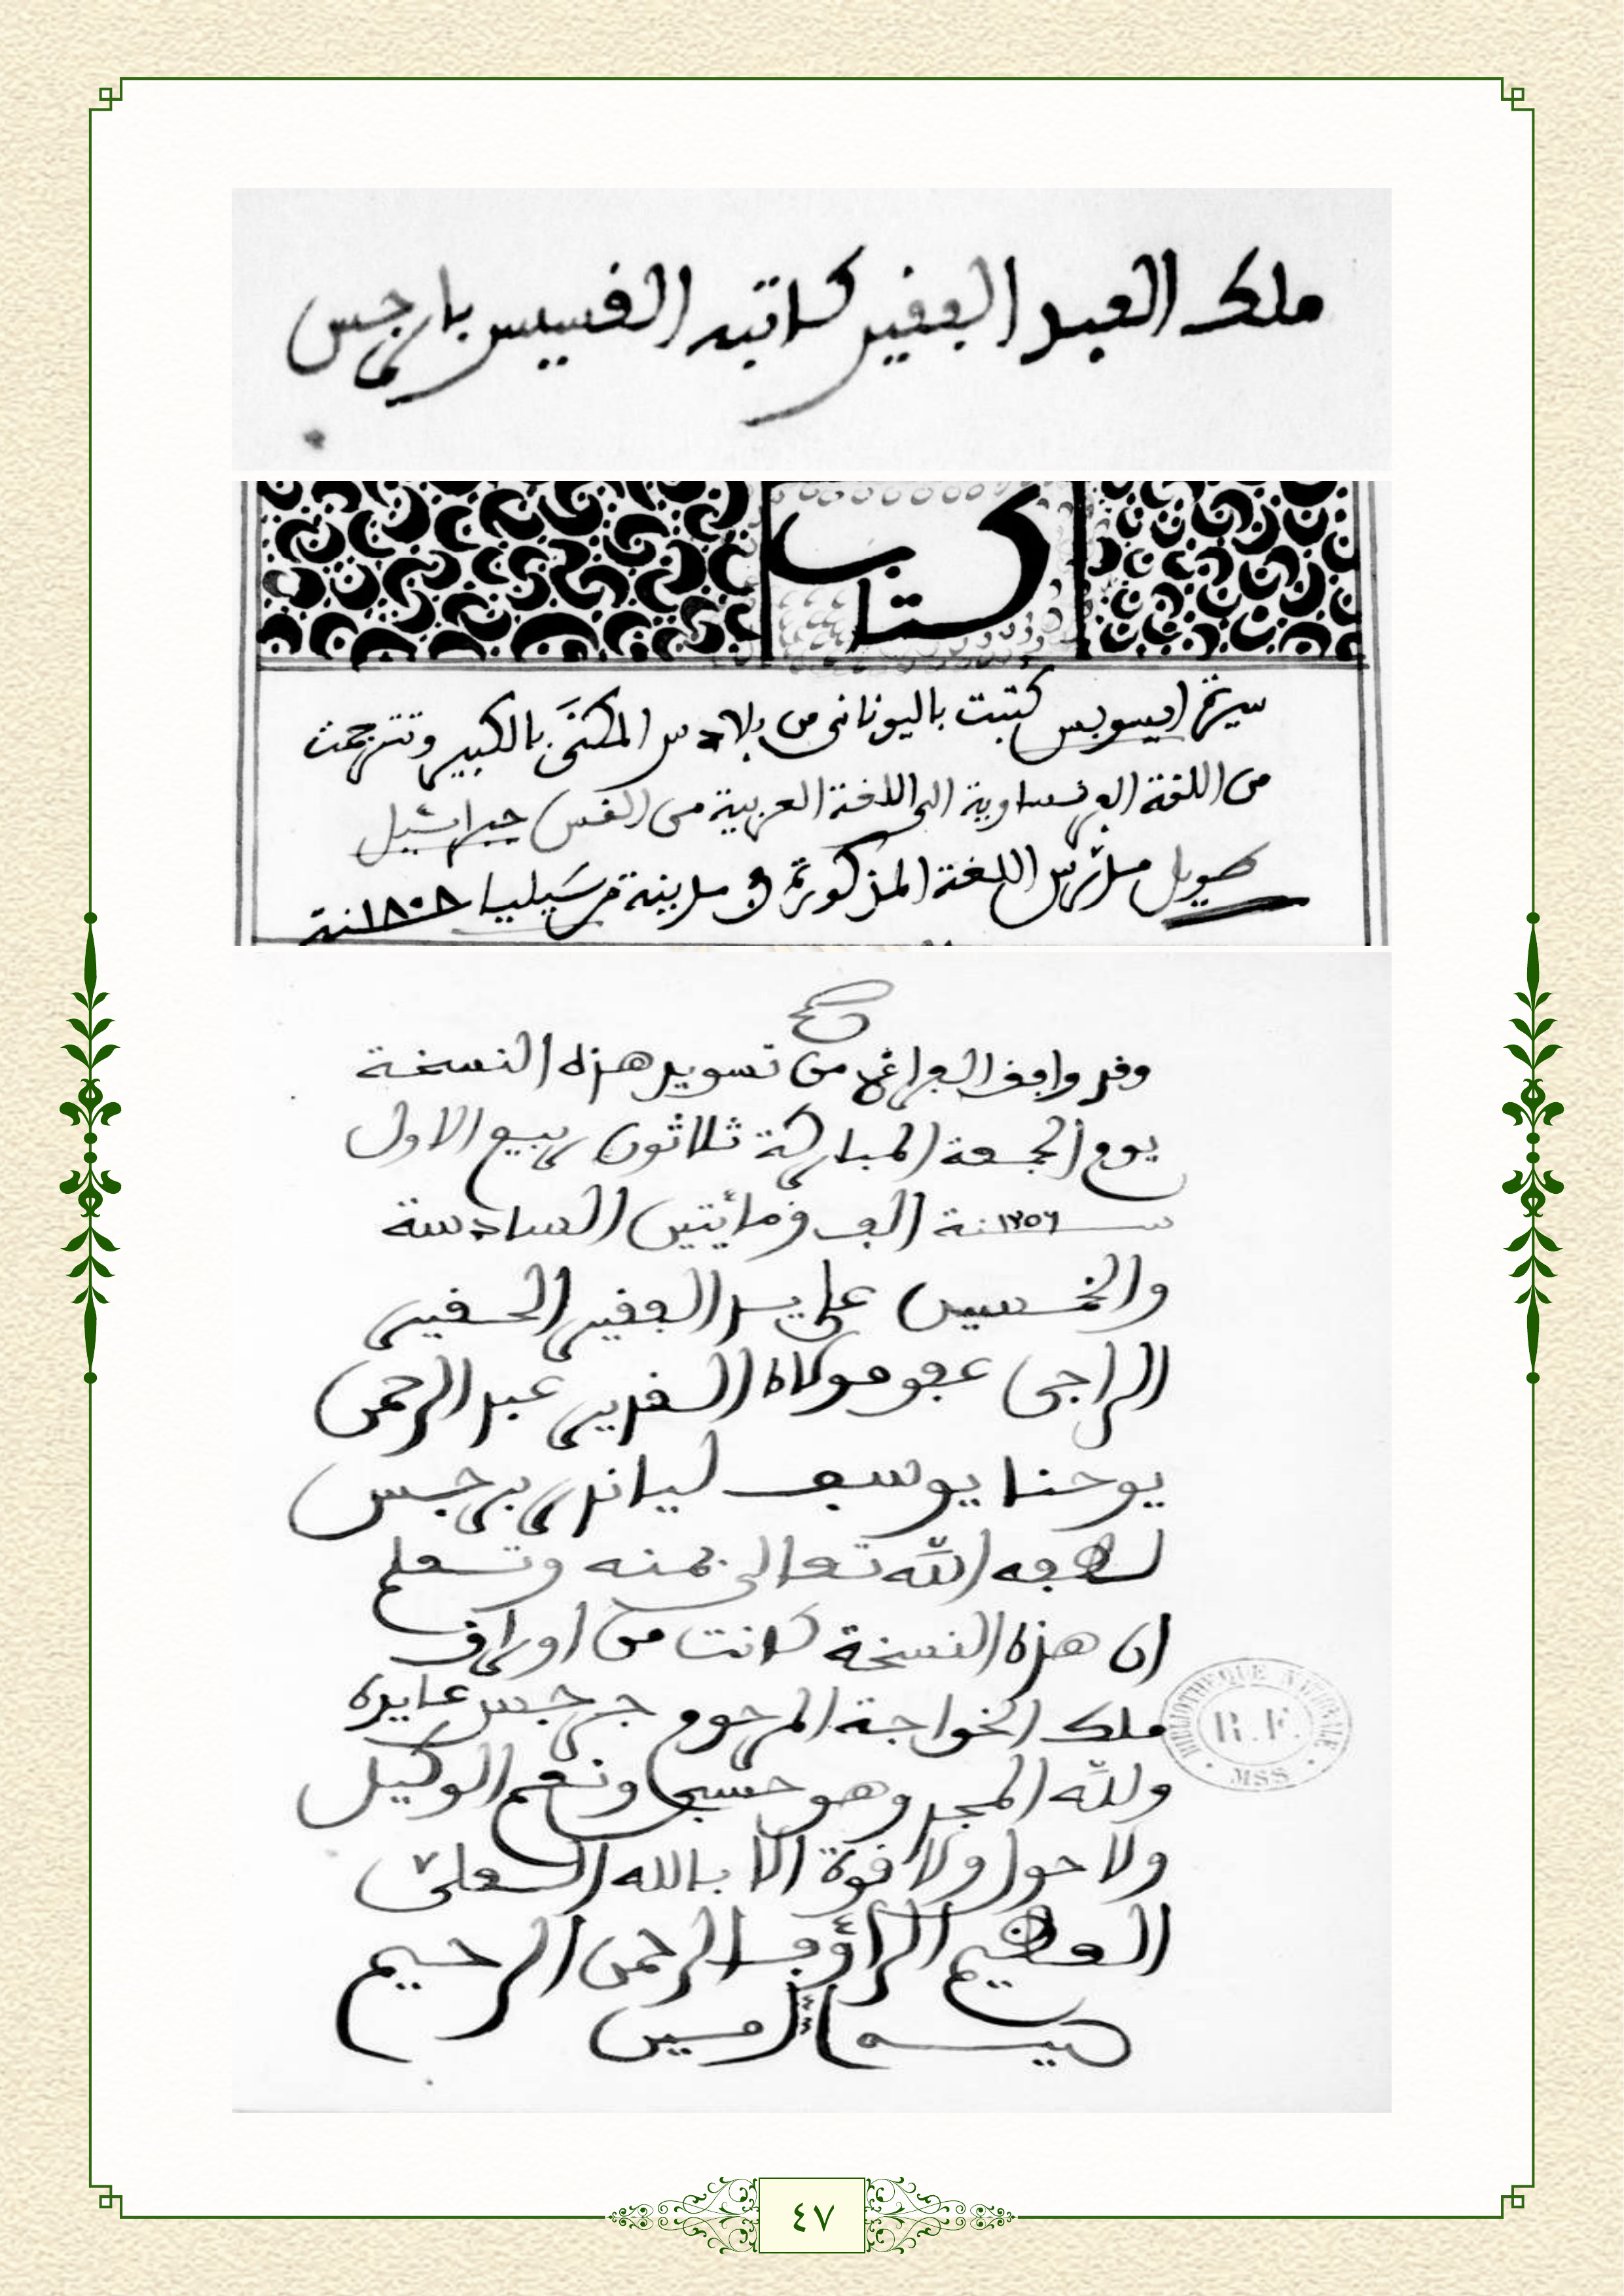 ملك العبد الفقير كاتبه القسيس بارجس
كتاب
سيرة ايسوبس كتبت باليوناني من بلادس المكنَّى بالكبير وتترجمت
من اللغة الفرنساوية الى اللغة العربية من القس جبرائيل
طويل مدرّس اللغة المذكورة في مدينة مرسيليا ١٨٠٨نة
وقد وافق الفراغ من تسويد هذه النسخة
يوم الجمعة المباركة ثلاثون ربيع الاول
سـ١٢٥٦ـنة الف ومائتين السادسة
والخمسين على يد الفقير الحقير
الراجي عفو مولاه القدير عبد الرحمن
يوحنا يوسف لياندر برجس
لطفه الله تعالى بمنه وتعلم
ان هذه النسخة كانت من اوراق
ملك الخواجة المرحوم جرجس عايدة
ولله المجد وهو حسبي ونعم الوكيل
ولا حول ولا قوة الا بالله العلي
العظيم الرؤوف الرحمن الرحيم
امين
BIBLIOTHEQUE NATIONALE
R.F.
MSS
٤٧